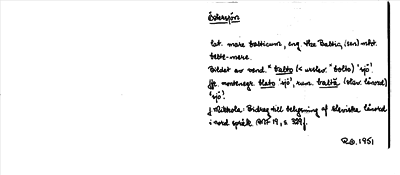 Östersjön
lat. mare balticum, eng. the Baltic, (sen) mht.
belte-mere.
Bildat av vend. *balto (< urslav. *bolto) 'sjö'.
Jfr montenegr. blato 'sjö', rum. baltă (slav. lånord)
'sjö'.
J. Mikkola: Bidrag till belysning af slaviska lånord
i nord. språk (ANF 19, s. 329 f.
R.O. 1951